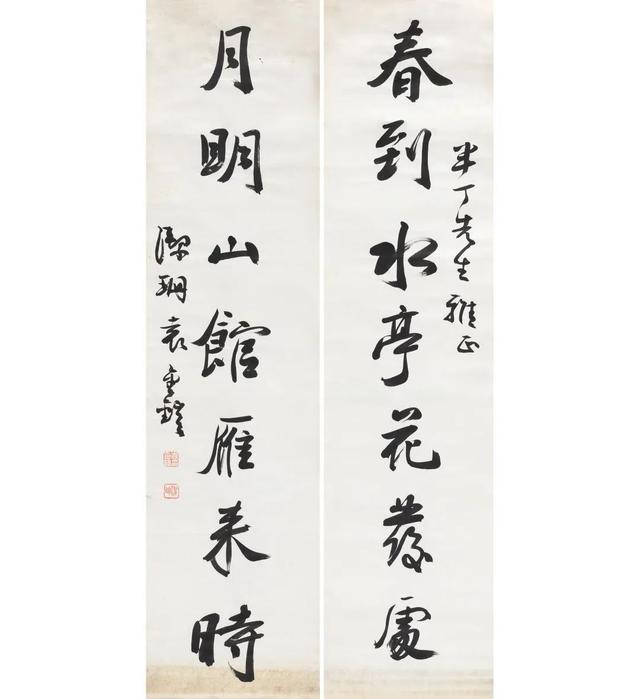 半丁先生雅正
春到水亭花發處
月明山館雁来時
潔珊袁金鎧